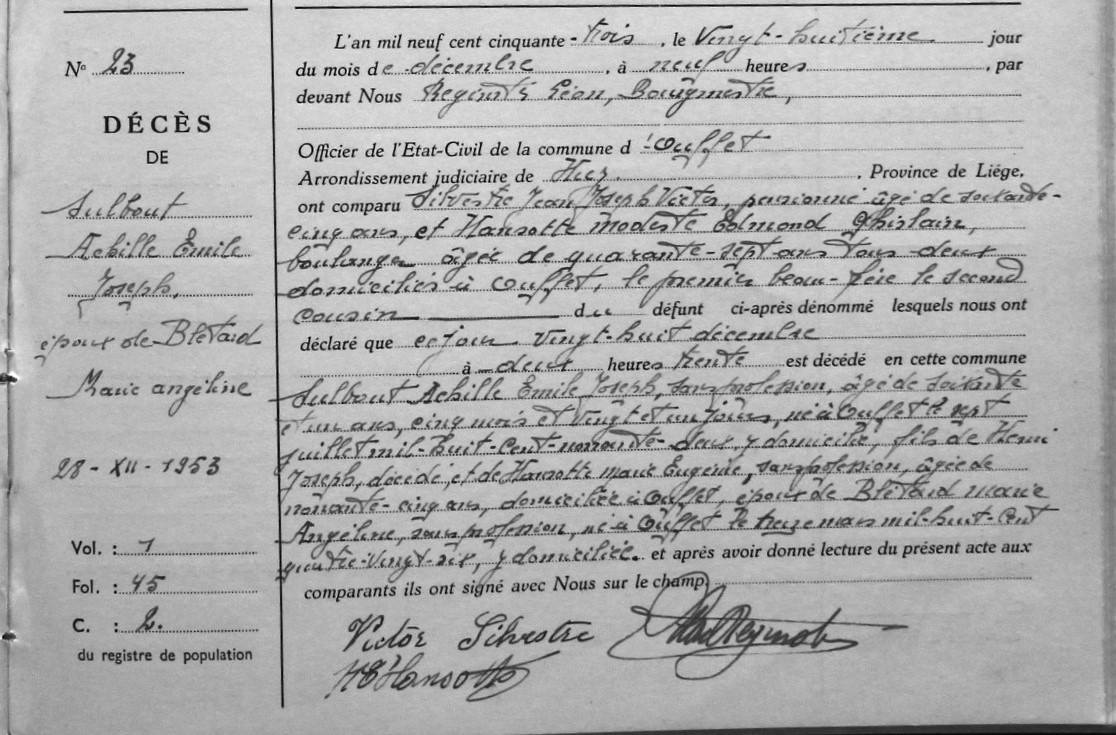 N° 23
DÉCÈS
DE
Sulbout
Achille Emile
Joseph,
époux de Blétard
Marie Angéline
28-XII-1953
Vol. : 1
Fol. : 45
C. : 2.
du registre de population
L'an mil neuf cent cinquante-trois, le vingt-huitième jour
du mois de décembre, à neuf heures, par
devant Nous Léon, Bourgmestre,
Officier de l'Etat-Civil de la commune d'Ouffet
Arrondissement judiciaire de Huy, Province de Liége,
ont comparu Silvestre Jean Joseph Victor, pensionné âgé de soixante-
cinq ans, et Hansotte Modeste Edmond Ghislain,
boulanger âgée de quarante-sept ans tous deux
domiciliés à Ouffet, le premier beau-frère le second
cousin du défunt ci-après dénommé lesquels nous ont
déclaré que ce jour vingt-huit décembre
à deux heures trente est décédé en cette commune
Sulbout Achille Emile Joseph, sans profession, âgé de soixante
et un ans, cinq mois et vingt et un jours, né à Ouffet le sept
juillet mil-huit-cent-nonante-deux y domicilié, fils de Henri
Joseph, décédé, et de Hansotte Marie Eugénie, sans profession, âgée de
nonante-cinq ans, domiciliée à Ouffet, époux de Blétard Marie
Angéline, sans profession, né à Ouffet le treize mars mil-huit-cent
quatre-vingt-six, y domiciliée. et après avoir donné lecture du présent acte aux
comparants ils ont signé avec Nous sur le champ.
Victor Silvestre
Hansotte